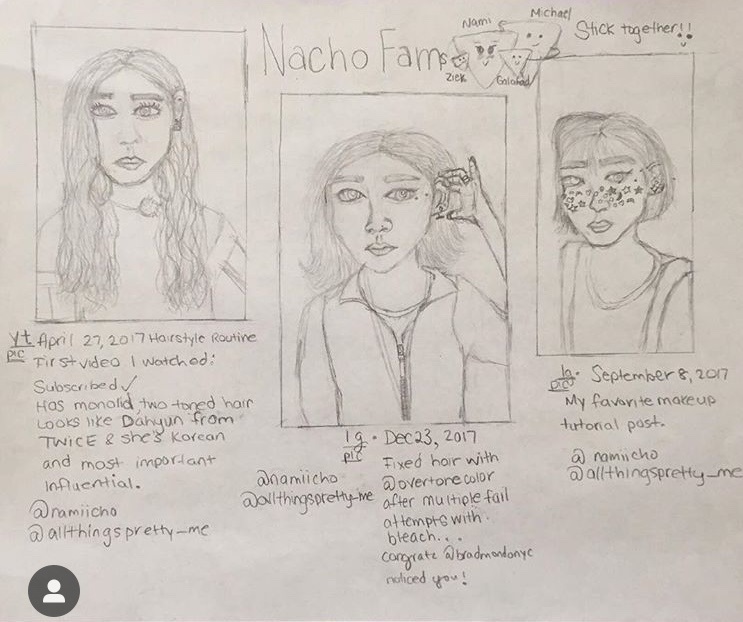 Nacho Fams
Nami
Michael
Ziek
Galahad
Stick together!!
yt pic April 27, 2017 Hairstyle Routine
First video I watched:
Subscribed ✓
Has monolid, two-toned hair
Looks like Dahyun from
TWICE & she's Korean
and most important
Influential.
@namiicho
@allthingspretty_me
Ig pic • Dec 23, 2017
Fixed hair with
@overtonecolor
after multiple fail
attempts with
bleach...
congratz @bradmondonyc
noticed you!
@namiicho
@allthingspretty_me
Ig pic • September 8, 2017
My favorite makeup
tutorial post.
@namiicho
@allthingspretty_me